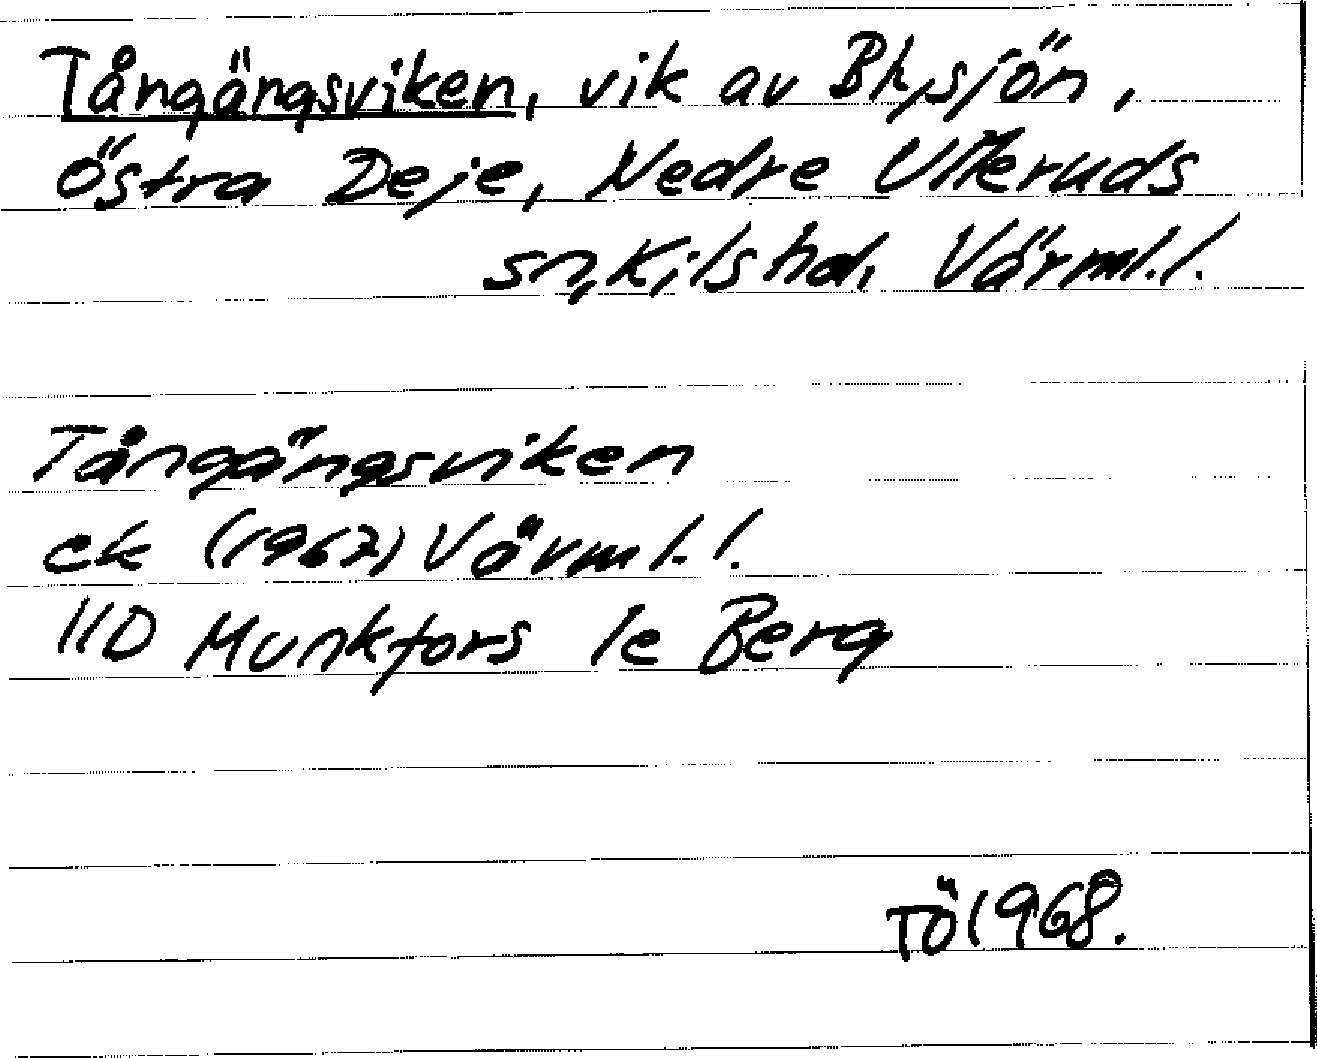 Tångängsviken, vik av
Östra Deje, Nedre Ulleruds
sn, Kils hd, Värml. l.
Tångängsviken
ek (1967) Värml. l.
11D Munkfors 1e Berg
TÖ 1968.